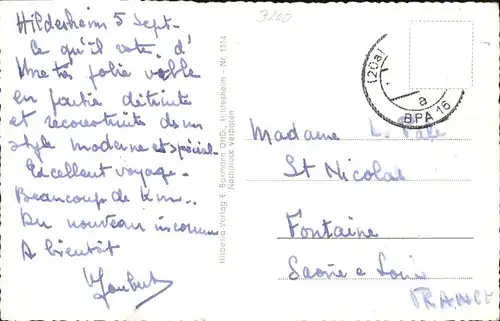 Hildesheim 5 Sept.
Ce qu'il reste d'
Une très jolie ville
en partie détruite
et reconstruite dans un
style moderne et spécial.
Excellent voyage.
Beaucoup de Km..
Du nouveau inconnu
A bientôt
Joubert
3200
Hildesia-Verlag E. Baxmann OHG, Hildesheim - Nr. 1514
Nachdruck verboten
(20a)
a
BPA 16
Madame L.
St Nicolas
Fontaine
Saône e Loire
FRANCE